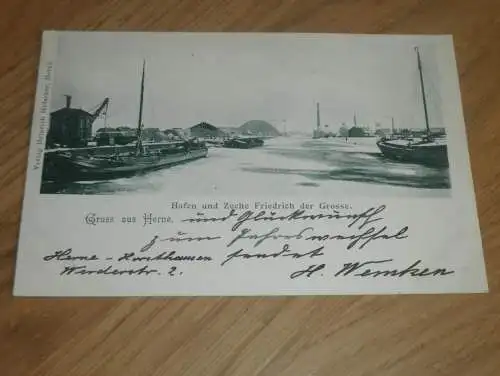 Verlag Heinrich
Hafen und Zeche Friedrich der Grosse.
Gruss aus Herne. und Glückwunsch
zum Jahreswechsel
Herne - Horsthausen sendet
Werderstr. 2. H. Wemken